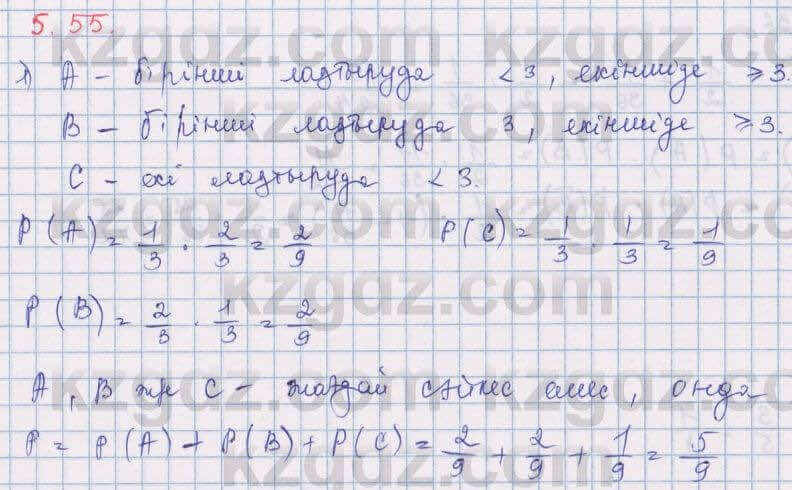 5.55.
1) А – бірінші лақтыруда < 3, екіншіде ⩾ 3.
В – бірінші лақтыруда 3, екіншіде ⩾ 3.
С – екі лақтыруда < 3.
P(A) = 1/3 · 2/3 = 2/9 P(C) = 1/3 · 1/3 = 1/9
P(B) = 2/3 · 1/3 = 2/9
А, В және С – жағдай сәйкес емес, онда
P = P(A) + P(B) + P(C) = 2/9 + 2/9 + 1/9 = 5/9